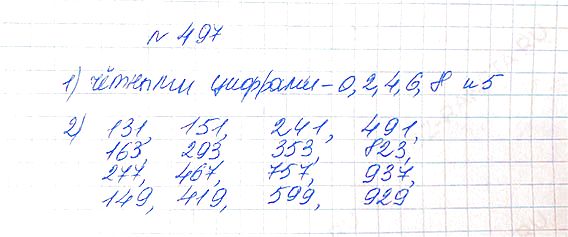 № 497
1) чётными цифрами – 0, 2, 4, 6, 8 и 5
2) 131, 151, 241, 491,
163 293 353, 823,
277, 467, 757, 937,
149, 419, 599, 929